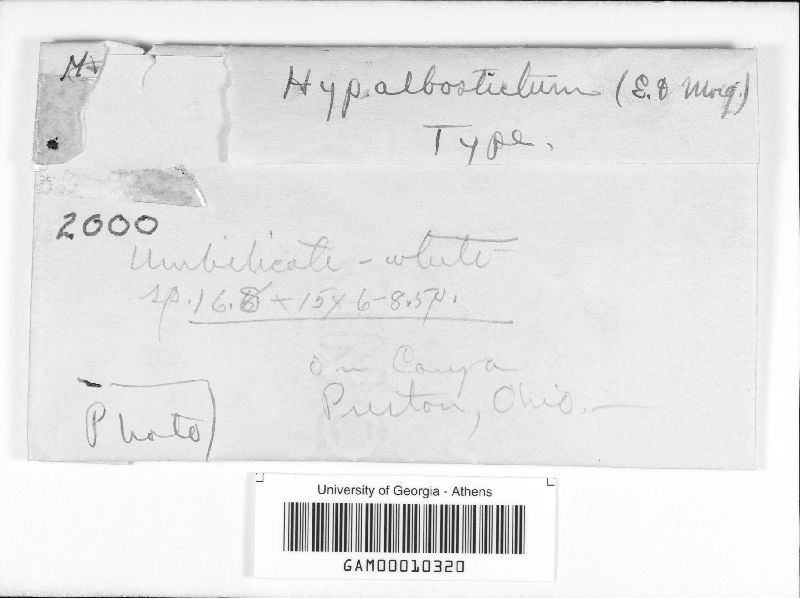 Hyp. albostictum (E. & Morg.)
Type.
2000
Umbilicate - white
sp. 16.8 + 15 x 6-8.5µ.
on Carya
Preston, Ohio. —
Photo
University of Georgia - Athens
GAM00010320